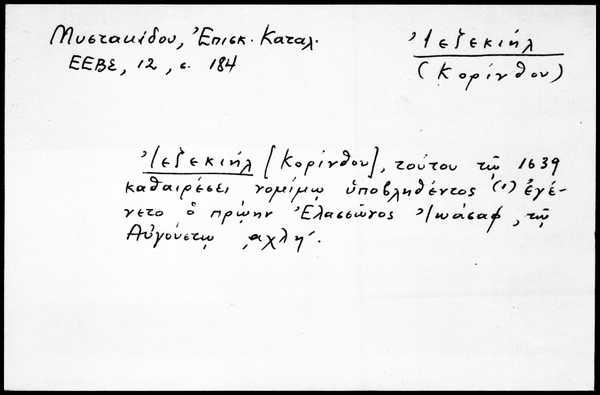 Μυστακίδου, Ἐπισκ. Καταλ.
ΕΕΒΣ, 12, σ. 184
Ἰεζεκιήλ
(Κορίνθου)
Ἰεζεκιήλ [Κορίνθου], τούτου τῷ 1639
καθαιρέσει νομίμῳ ὑποβληθέντος (1) ἐγέ-
νετο ὁ πρῴην Ἐλασσῶνος Ἰωάσαφ, τῷ
Αὐγούστῳ ͵αχλή.